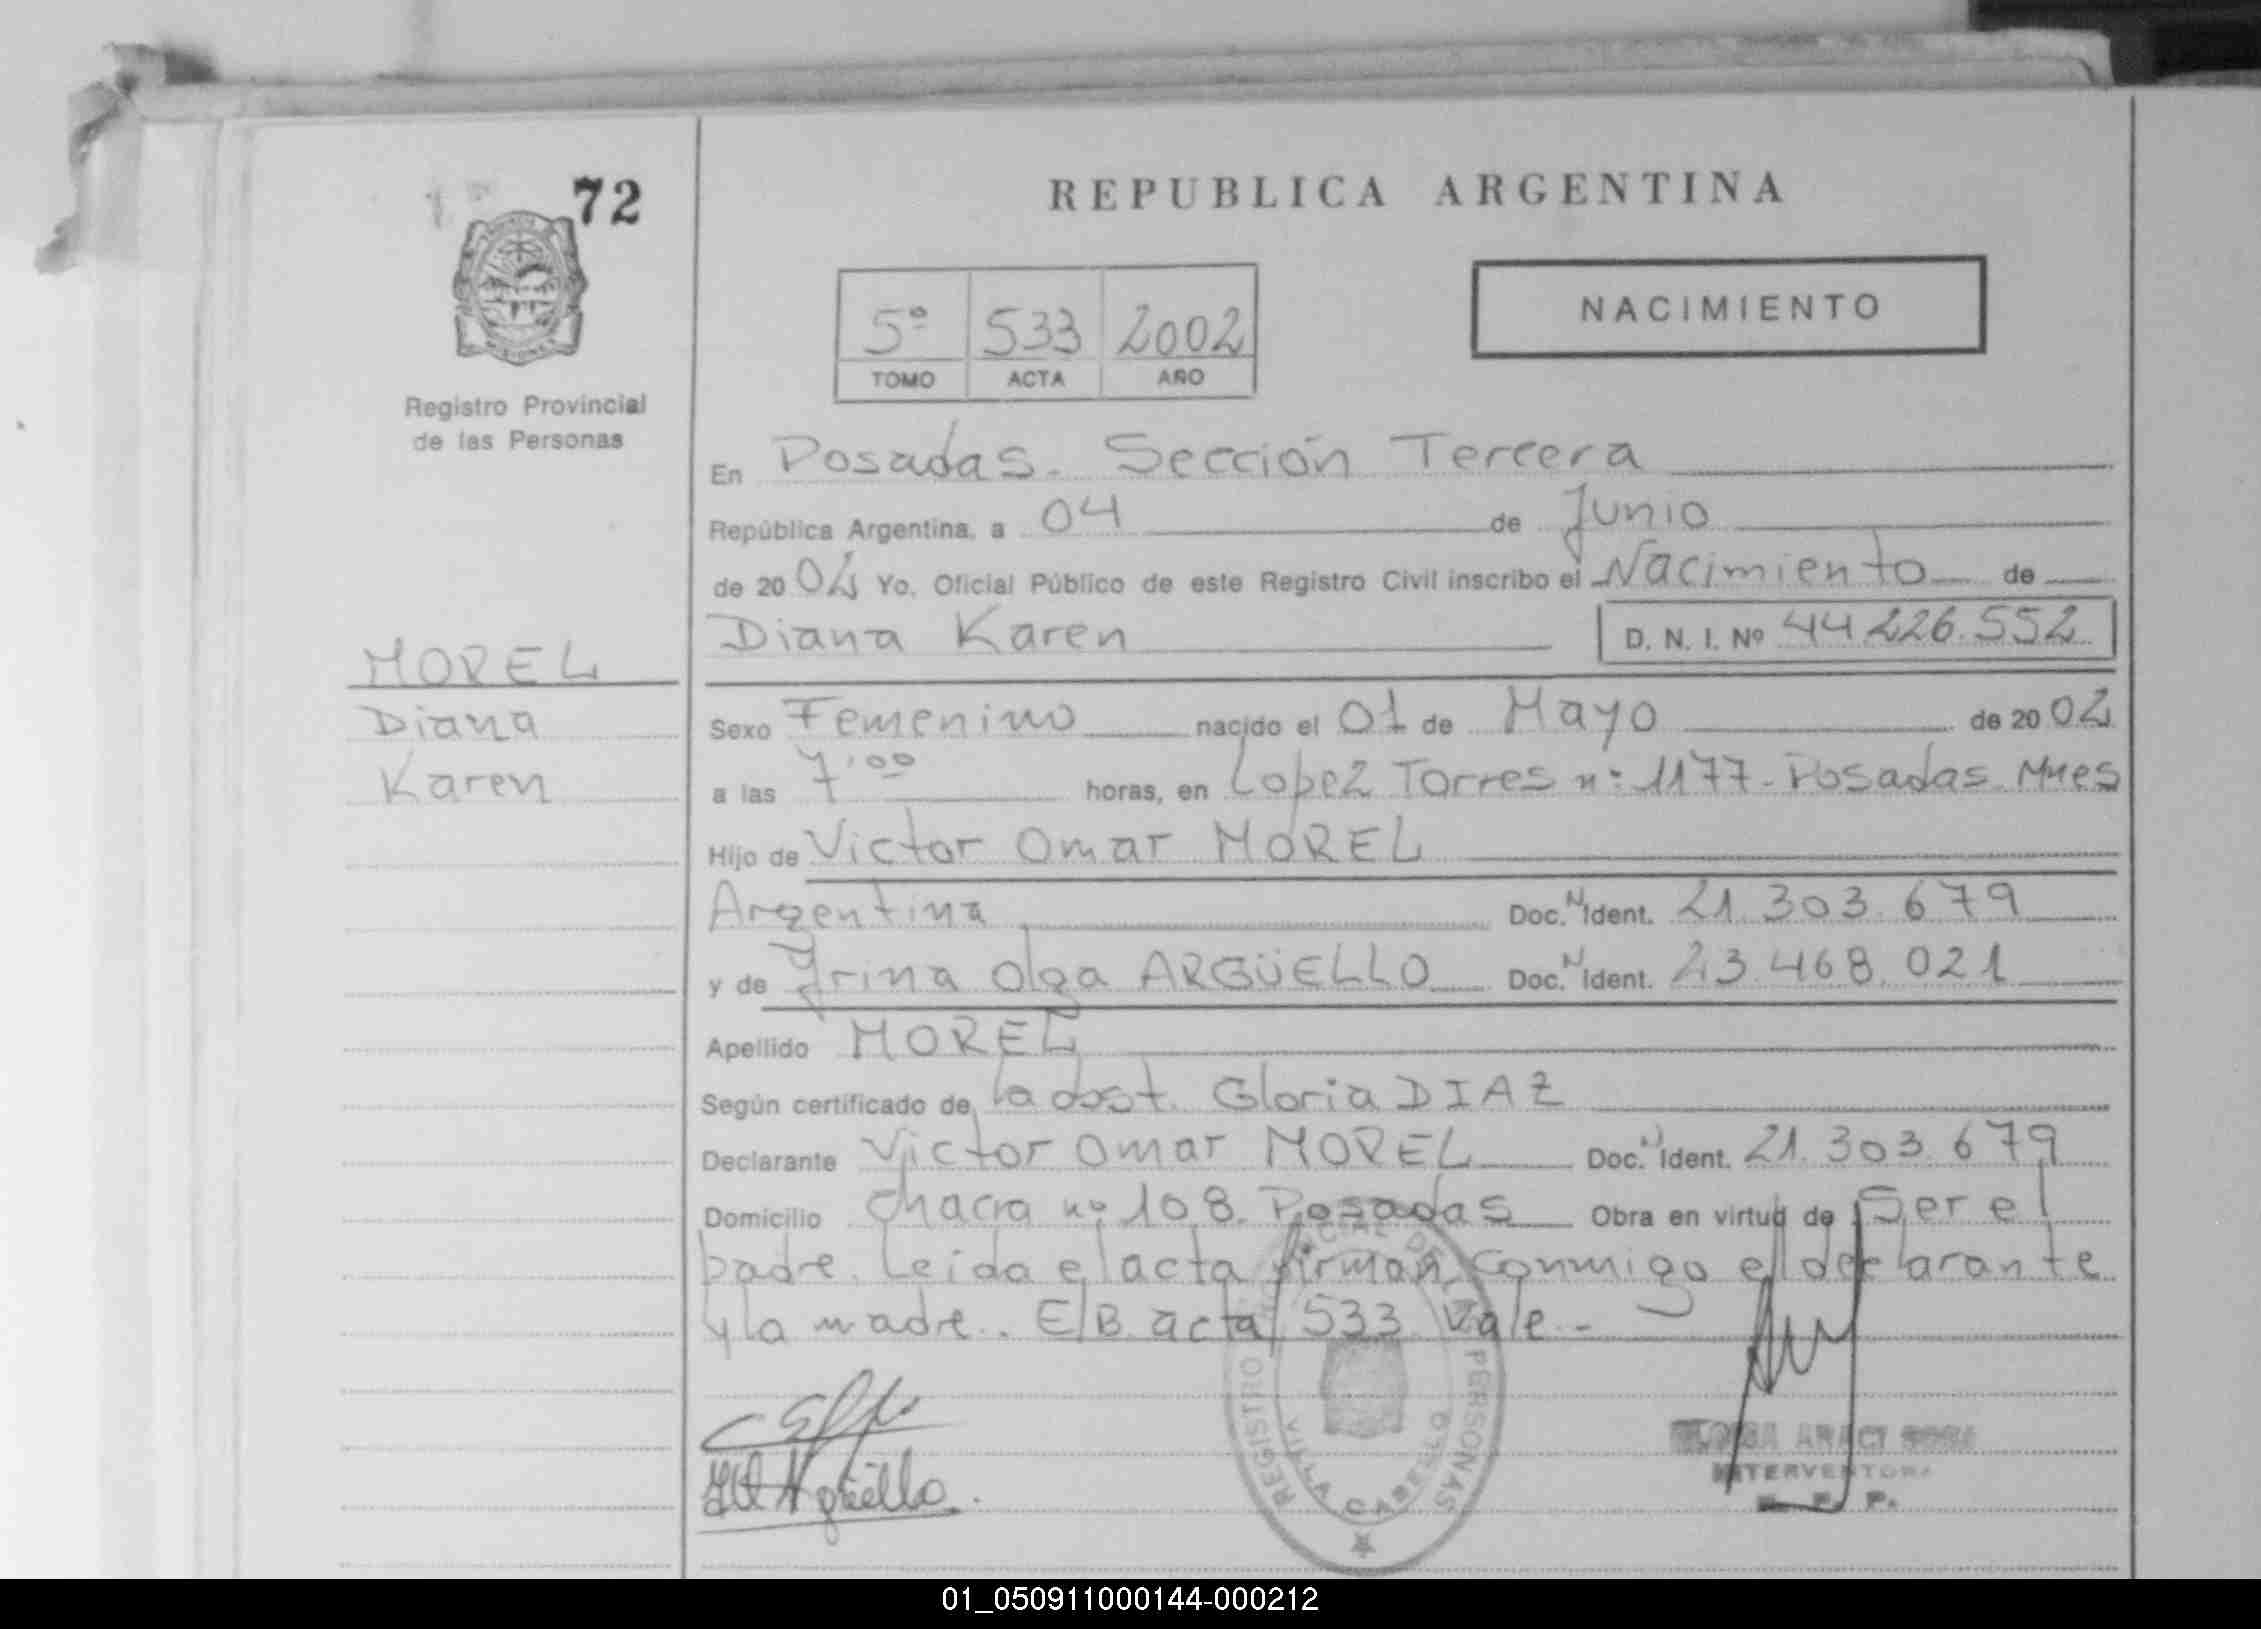 72
REPUBLICA ARGENTINA
NACIMIENTO
5º 533 2002
TOMO ACTA AÑO
Registro Provincial
de las Personas
En Posadas. Sección Tercera
República Argentina, a 04 de Junio
de 20 02 Yo, Oficial Público de este Registro Civil inscribo el Nacimiento de
Diana Karen D. N. I. Nº 44.226.552
MOREL
Diana
Karen
Sexo Femenino nacido el 01 de Mayo de 20 02
a las 7'00 horas, en Lopez Torres nº 1177 - Posadas. Mnes
Hijo de Victor Omar MOREL
Argentina Doc. N Ident. 21.303.679
y de Yrina Olga ARGÜELLO Doc. N Ident. 23.468.021
Apellido MOREL
Según certificado de la obst. Gloria DIAZ
Declarante Victor Omar MOREL Doc. N Ident. 21.303.679
Domicilio Chacra nº 108. Posadas Obra en virtud de Ser el
padre. Leida el acta firman conmigo el declarante
y la madre. E/B. acta 533 Vale.-
REGISTRO PROVINCIAL DE LAS PERSONAS
VILLA CABELLO
Argüello.
ARACI SOSA
INTERVENTORA
01_050911000144-000212